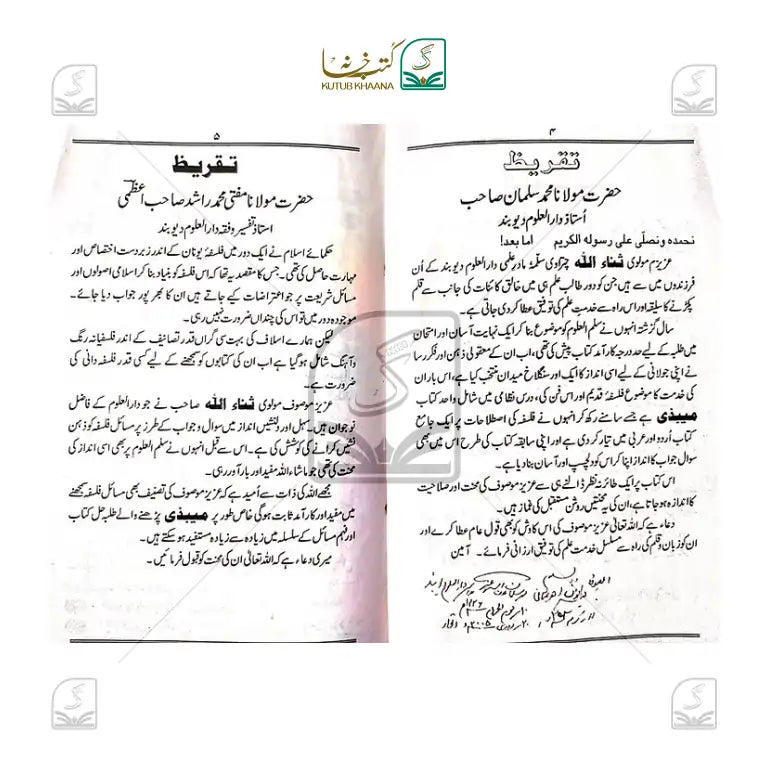 کتب خانہ
KUTUB KHAANA
۴
تقریظ
حضرت مولانا محمد سلمان صاحب
اُستاذ دارالعلوم دیوبند
نحمده ونصلّی علی رسوله الکریم اما بعد!
عزیزم مولوی ثناء اللہ چتراوی سلّمہٗ مادرِ علمی دارالعلوم دیوبند کے اُن
فرزندوں میں سے ہیں جن کو دورِ طالب علمی ہی میں خالقِ کائنات کی جانب سے قلم
پکڑنے کا سلیقہ اور اس راہ سے خدمتِ علم کی توفیق عطا کردی جاتی ہے۔
سالِ گزشتہ انہوں نے سلم العلوم کو موضوع بنا کر ایک نہایت آسان اور امتحان
میں طلبہ کے لیے حد درجہ کارآمد کتاب پیش کی تھی، اب ان کے معقولی ذہن اور فکرِ رسا
نے اپنی جولانی کے لیے اسی انداز کا ایک اور سنگلاخ میدان منتخب کیا ہے، اس بار ان
کی خدمت کا موضوع فلسفۂ قدیم اور اس فن کی، درسِ نظامی میں شامل واحد کتاب
میبذی ہے جسے سامنے رکھ کر انہوں نے فلسفہ کی اصطلاحات پر ایک جامع
کتاب اُردو اور عربی میں تیار کردی ہے اور اپنی سابقہ کتاب کی طرح اس میں بھی
سوال جواب کا انداز اپنا کر اس کو دلچسپ اور آسان بنادیا ہے۔
اس کتاب پر ایک طائرانہ نظر ڈالنے ہی سے عزیز موصوف کی محنت اور صلاحیت
کا اندازہ ہوجاتا ہے، ان کی یہ محنتیں روشن مستقبل کی غماز ہیں۔
دعاء ہے کہ اللہ تعالیٰ عزیز موصوف کی اس کاوش کو بھی قبولِ عام عطا کرے اور
ان کو زبان و قلم کی راہ سے مسلسل خدمتِ علم کی توفیق ارزانی فرمائے۔ آمین
۵
تقریظ
حضرت مولانا مفتی محمد راشد صاحب اعظمی
استاذ تفسیر وفقہ دارالعلوم دیوبند
حکمائے اسلام نے ایک دور میں فلسفۂ یونان کے اندر زبردست اختصاص اور
مہارت حاصل کی تھی۔ جس کا مقصد یہ تھا کہ اس فلسفہ کو بنیاد بنا کر اسلامی اصولوں اور
مسائلِ شریعت پر جو اعتراضات کیے جاتے ہیں ان کا بھرپور جواب دیا جائے۔
موجودہ دور میں تو اس کی چنداں ضرورت نہیں رہی۔
لیکن ہمارے اسلاف کی بہت سی گراں قدر تصانیف کے اندر فلسفیانہ رنگ
وآہنگ شامل ہوگیا ہے اب ان کی کتابوں کو سمجھنے کے لیے کسی قدر فلسفہ دانی کی
ضرورت ہے۔
عزیز موصوف مولوی ثناء اللہ صاحب نے جو دارالعلوم کے فاضل
نوجوان ہیں۔ سہل اور دلنشیں انداز میں سوال و جواب کے طرز پر مسائل فلسفہ کو ذہن
نشیں کرانے کی کوشش کی ہے۔ اس سے قبل انہوں نے سلم العلوم پر بھی اسی انداز کی
محنت کی تھی جو ماشاء اللہ مفید اور بارآور رہی۔
مجھے اللہ کی ذات سے اُمید ہے کہ عزیز موصوف کی تصنیف بھی مسائلِ فلسفہ سمجھنے
میں مفید اور کارآمد ثابت ہوگی خاص طور پر میبذی پڑھنے والے طلبہ حل کتاب
اور فہم مسائل کے سلسلہ میں زیادہ سے زیادہ مستفید ہوسکتے ہیں۔
میری دعاء ہے کہ اللہ تعالیٰ ان کی محنت کو قبول فرمائیں۔